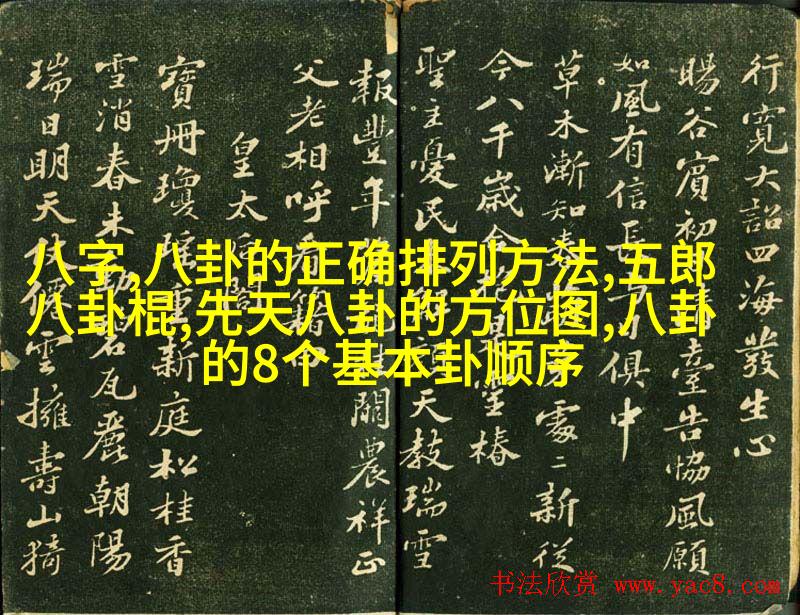 八字,八卦的正确排列方法,五郎
八卦棍,先天八卦的方位图,八卦
的8个基本卦顺序
行寬大詔四海發生心
暘谷賓初清臺告協風願
如風有信長俱中
草木漸知春處〻新從
今八千歲合靈椿
聖主憂民天教瑞雪
報豐年關農祥正
父老相呼看籍
皇太后閣
寶冊瓊瑤重新庭松桂香
雪消春未動碧瓦麗朝陽
瑞日明天仗僊雲擁壽山猗
书法欣赏 www.yac8.com